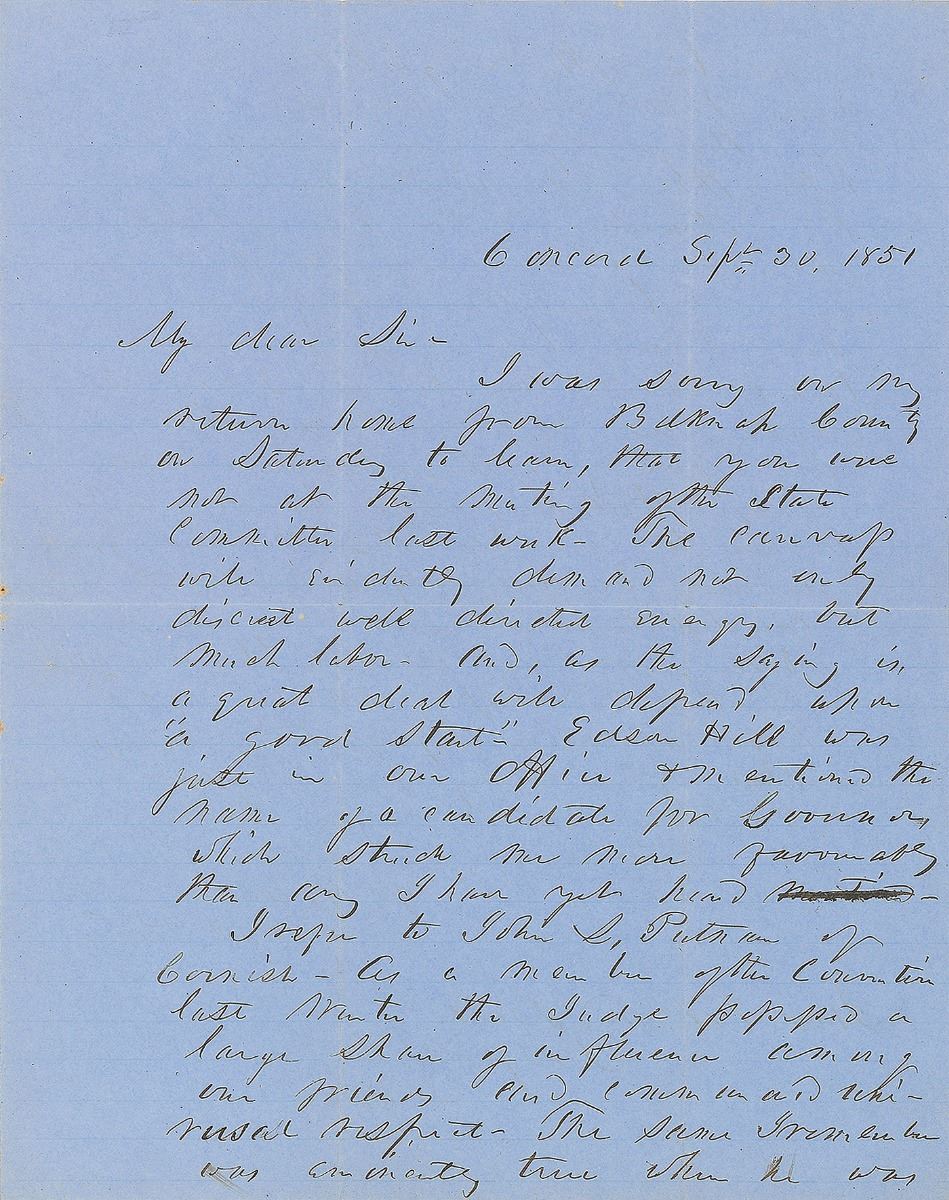 Concord Sept 30, 1851
My dear Sir -
I was sorry on my
return home from Belknap County
on Saturday to learn, that you were
not at the meeting of the State
Committee last week - The canvass
will evidently demand not only
discreet well directed energy, but
much labor - and, as the saying is,
a great deal will depend upon
"a good start" - Edson Hill was
just in our Office & mentioned the
name of a candidate for Governor
which struck me more favourably
than any I have yet heard -
I refer to John L, Putnam of
Cornish - As a member of the Convention
last Winter the Judge possessed a
large share of influence among
our friends and command uni-
versal respect - The same I remember
was eminently true when he was